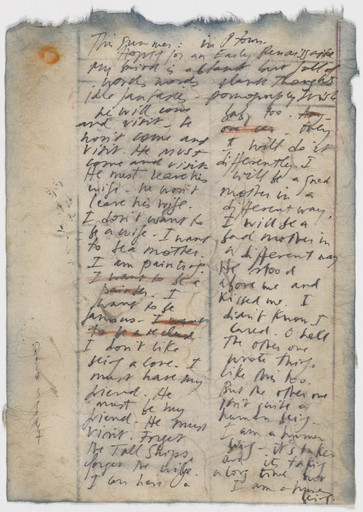 This summer: in P Town
Hopes for an Early Renaissance
My mind is a blank but full of
words words blank thoughts
idle fantasies
he will come
and visit. He
won't come and
visit. He must
come and visit.
He must leave his
wife. He won't
leave his wife.
I don't want to
be a wife. I want
to be a mother.
I am painting.
I want to be a
painter. I
want to be
famous. I want
to be
I don't like
being alone. I
must have my
friend. He
must be my
friend. He must
visit. Forget
the Tall Ships.
forget the wife.
I can have a
baby too.
They
I will do it
differently. I
will be a good
mother in a
different way.
I will be a
bad mother in
a different way
He stood
above me and
kissed me. I
didn't know I
cared. O hell
The other one
wrote this
like this too.
But the other one
isn't quite a
human being.
I am a human
being. it's taken
and it's taking
a long time but
I am a human
being